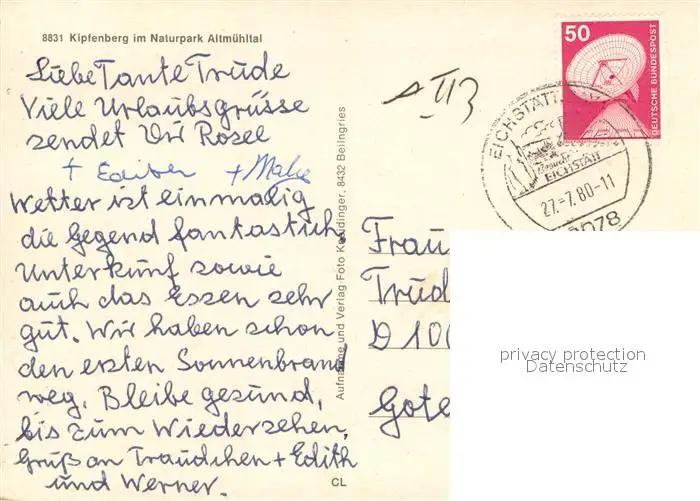 8831 Kipfenberg im Naturpark Altmühltal
Liebe Tante Trude
Viele Urlaubsgrüsse
sendet Dir Rosel
+
+
Wetter ist einmalig
die Gegend fantastich
Unterkunf sowie
auch das Essen sehr
gut. Wir haben schon
den ersten Sonnenbrand
weg. Bleibe gesund,
bis zum Wiedersehen,
Gruß an Traudchen + Edith
und Werner.
Aufnahme und Verlag Foto 8432 Beilngries
CL
50
DEUTSCHE BUNDESPOST
EICHSTÄTT
EICHSTÄTT
27.-7.80-11
8078
Frau
Trud
D 100
Gote
privacy protection
Datenschutz